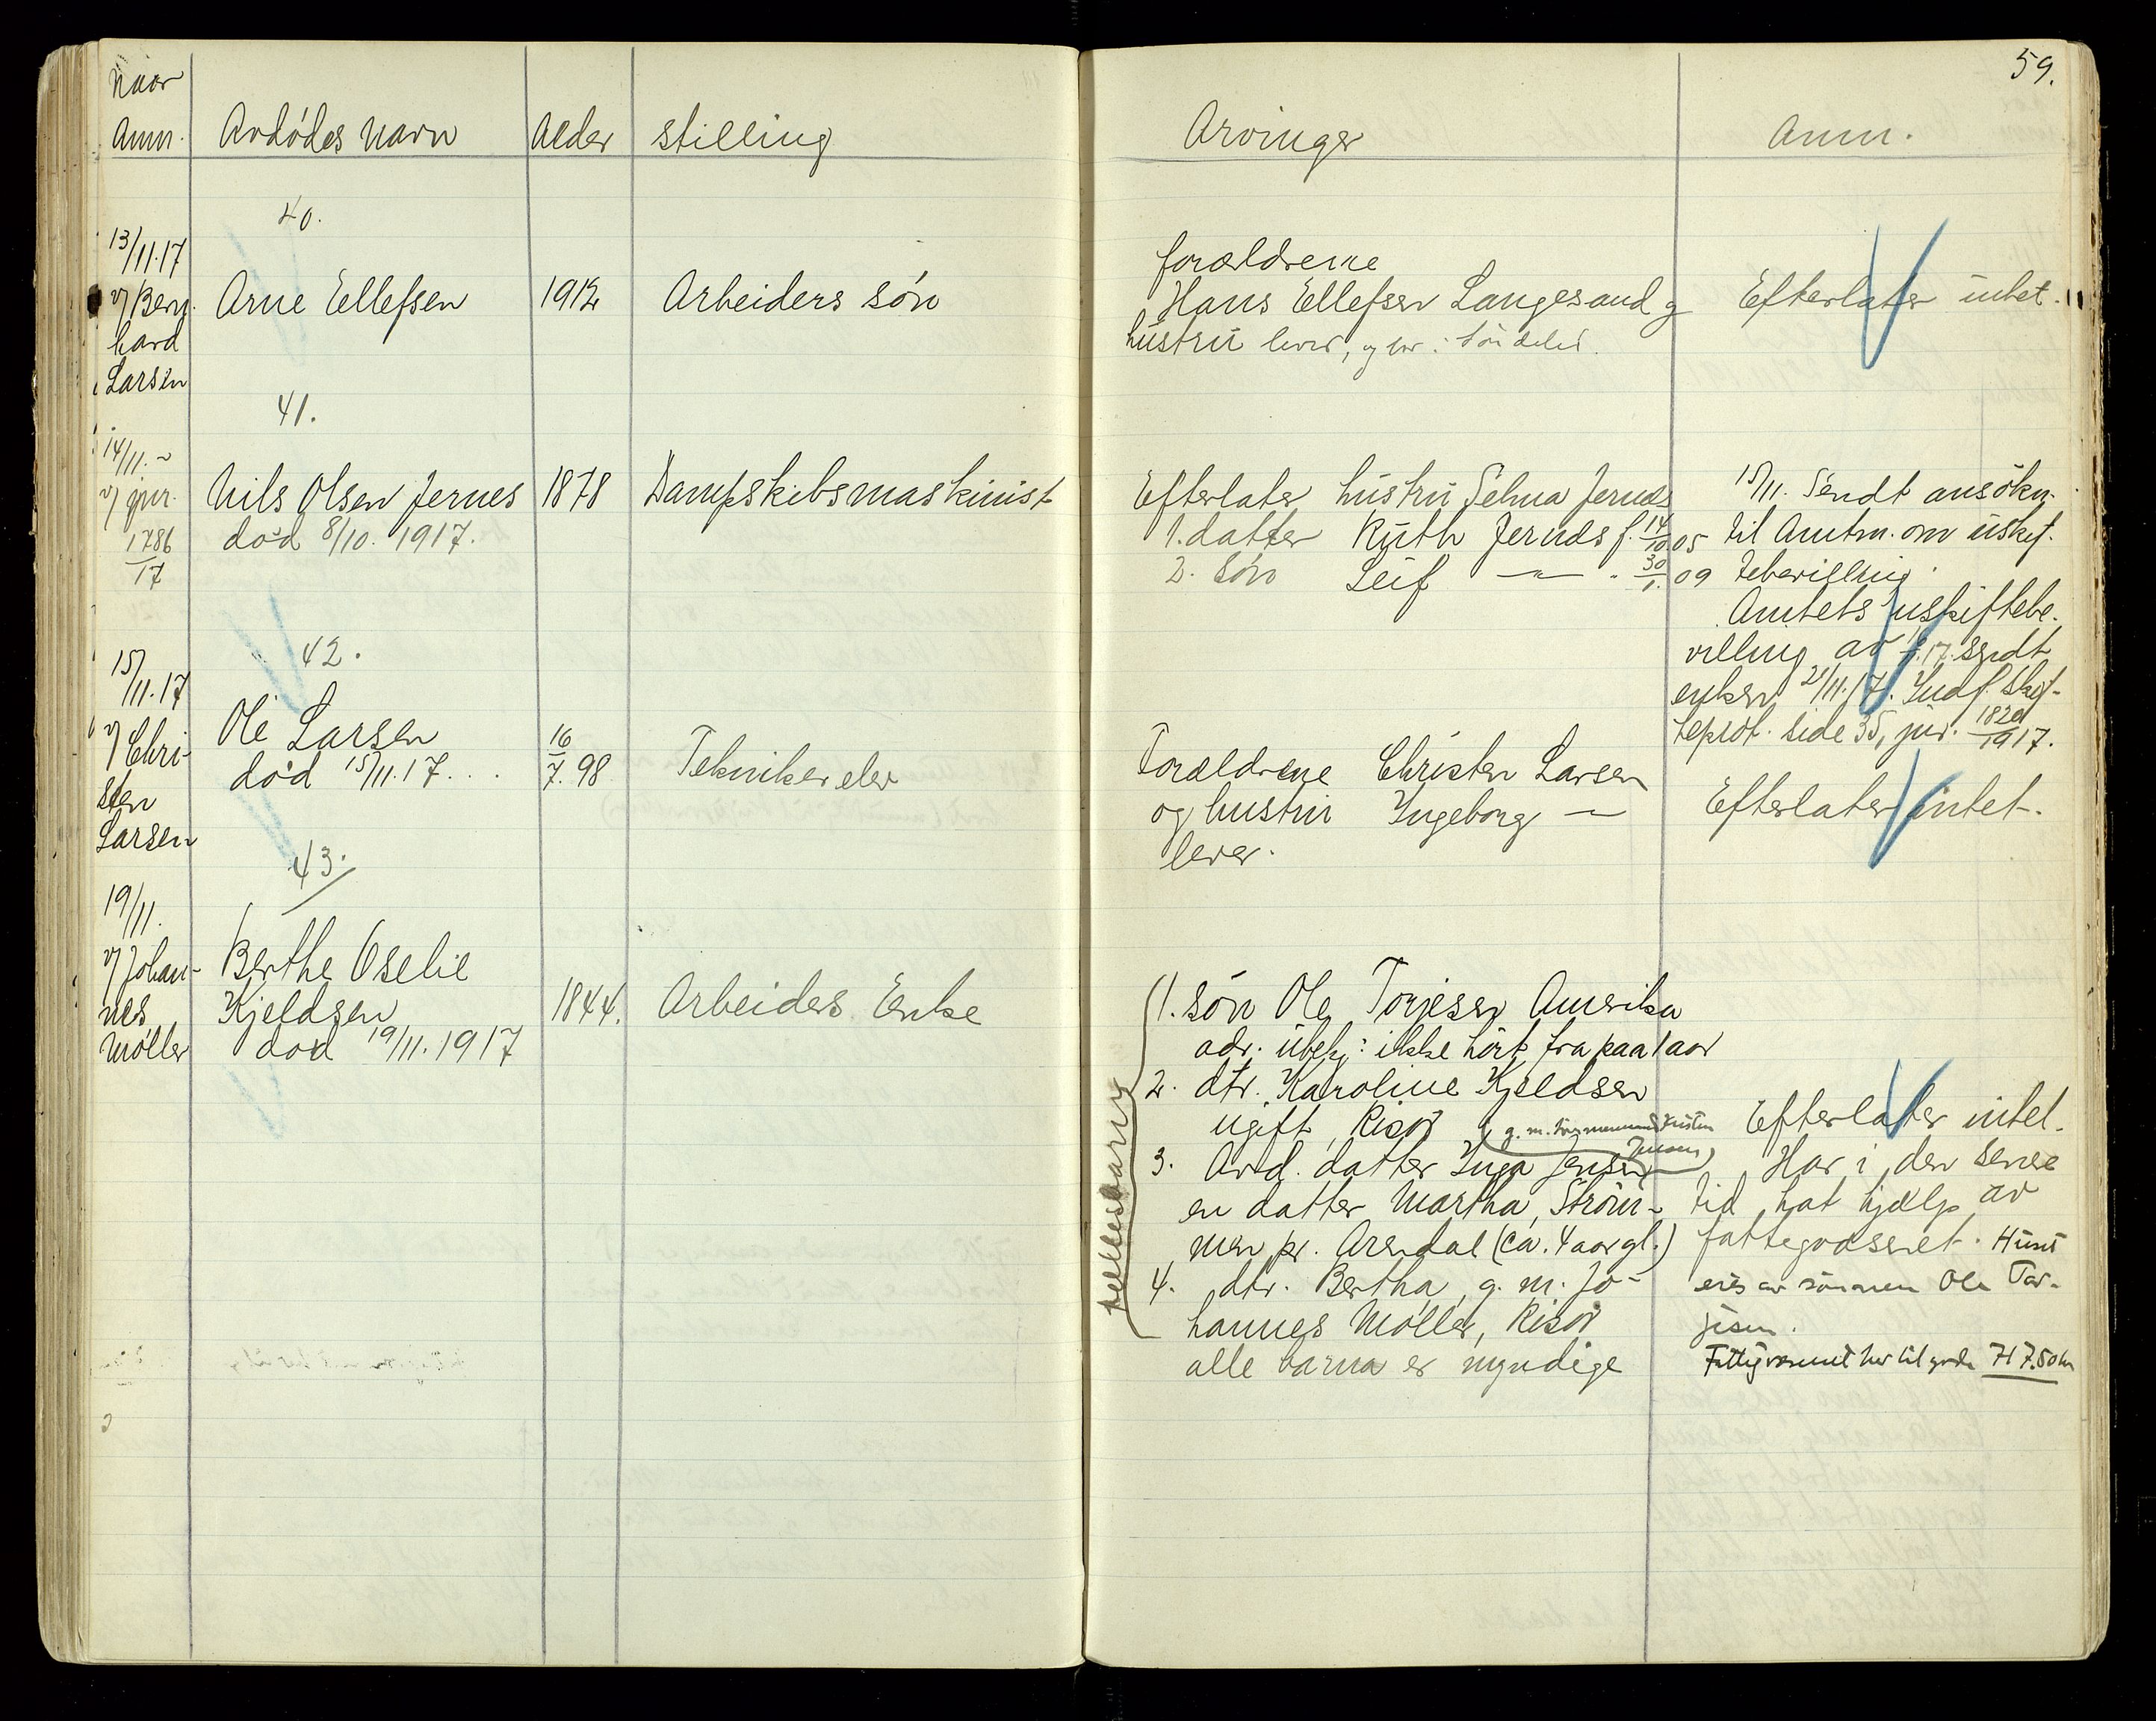 59.
Naar
Anm.
Avdødes navn
Alder
stilling
Arvinger
Anm.
40.
13/11.17
v/ Bern-
hard
Larsen
Arne Ellefsen
1912
Arbeiders søn
forældrene
Hans Ellefsen Langesand og
hustru lever, og bor i Søndeled.
Efterlater intet.
41.
14/11. ~
v/ jnr.
1786
17
Nils Olsen Jernes
død 8/10. 1917.
1878
Dampskibsmaskinist
Efterlater hustru Selma Jernæs
1. datter Ruth Jernæs f. 14/10 05
2. søn Leif —"— " 30/1. 09
15/11. Sendt ansøkn.
til Amtm. om uskif-
tebevilling.
Amtets uskiftebe-
villing av .17. sendt
enken 21/11.17. Indf. Skif-
teprot. side 35, jnr. 1820/1917.
42.
15/11.17
v/ Chri-
sten
Larsen
Ole Larsen
død 15/11.17...
16/7. 98
Tekniker elev
Forældrene Christen Larsen
og hustru Ingeborg —
lever.
Efterlater intet.
43.
19/11.
v/ Johan-
nes
Møller
Berthe Oselie
Kjeldsen
død 19/11.1917
1844.
Arbeiders Enke
fellesbarn
1. søn Ole Torjesen Amerika
adr. ubekj: ikke hørt fra paa 1 aar
2. dtr. Karoline Kjeldsen
ugift, Risør
(g. m. Jensen)
3. Avd. datter Inga Jensen
en datter Martha, Strøm-
men pr. Arendal (ca. 4 aar gl.)
4. dtr. Bertha, g. m. Jo-
hannes Møller, Risør
alle barna er myndige
Efterlater intet.
Har i den senere
tid hat hjælp av
fattigvæsenet. Huset
eies av sønnen Ole Tor-
jesen.
Fattigvæsenet har til gode 717.50 kr